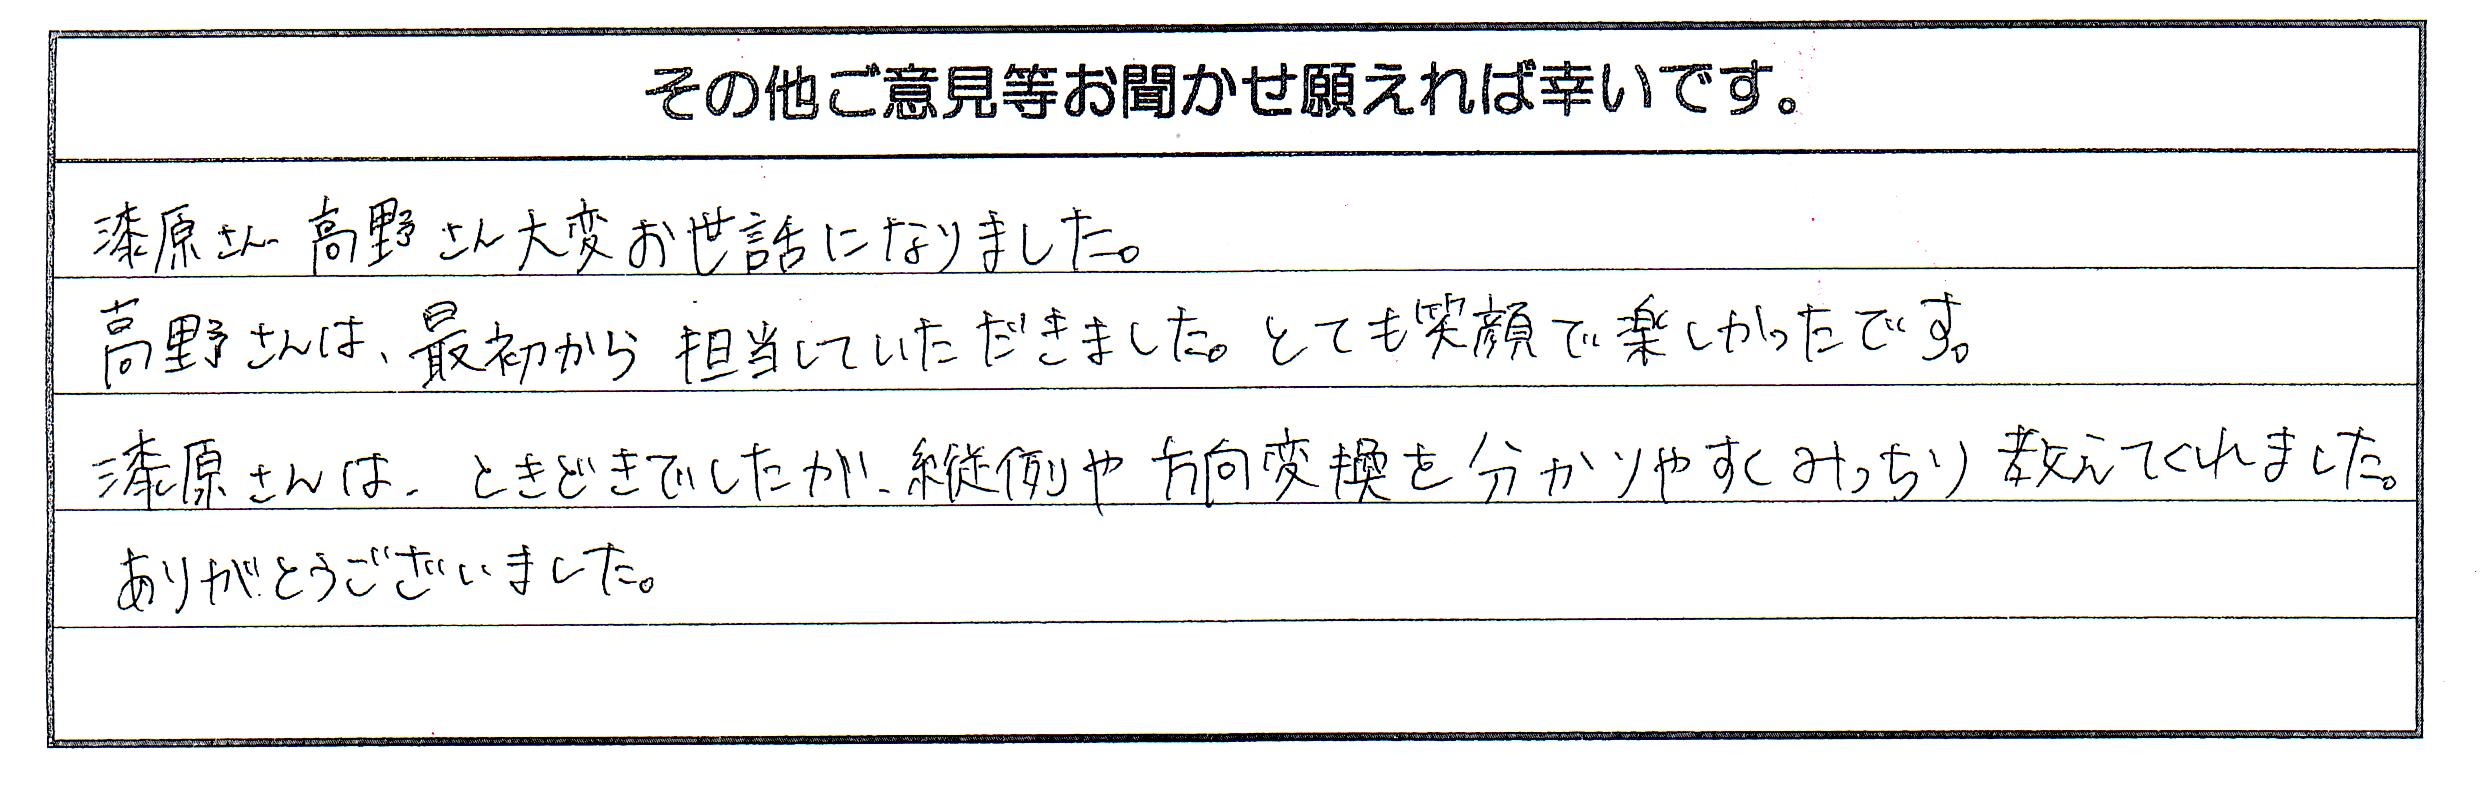 その他ご意見等お聞かせ願えれば幸いです。
漆原さん 高野さん大変お世話になりました。
高野さんは、最初から 担当していただきました。とても笑顔で楽しかったです。
漆原さんは、ときどきでしたが、縦例や 方向変換を分かりやすくみっちり教えてくれました。
ありがとうございました。